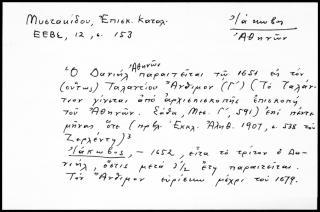 Μυστακίδου, Ἐπισκ. Κατάλ.
ΕΕΒΣ, 12, σ. 153
Ἰάκωβος
Ἀθηνῶν
Ἀθηνῶν
Ὁ Δανιὴλ παραιτεῖται τῷ 1651 εἰς τὸν
(οὕτως) Ταλαντίου Ἄνθιμον (Γ΄) (Τὸ Ταλάν-
τιον γίνεται ἀπὸ ἀρχιεπισκοπῆς ἐπισκοπὴ
τοῦ Ἀθηνῶν. Σάθα, Μεσ. Γ΄, 591) ἐπὶ πέντε
μῆνας, ὅτε (πρβλ. Ἐκκλ. Ἀλήθ. 1907, σ. 538 τοῦ
Σερλέντη)
Ἰάκωβος, - 1652, εἶτα τὸ τρίτον ὁ Δα-
νιήλ, ὅστις μετὰ 3½ ἔτη παραιτεῖται.
Τὸν Ἄνθιμον εὑρίσκομεν μέχρι τοῦ 1679.